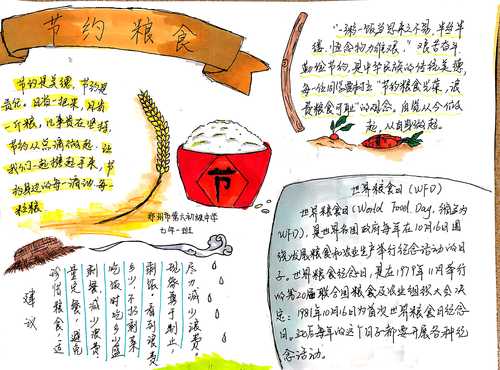 节约粮食
节约是美德,节约是
责任。
一斤粮,
节约从点滴做起,让
我们一起携起手来,节
约身边的每一滴水,每一
粒粮
"一粥一饭当思来之不易,半丝半
缕,恒念物力维艰。"艰苦奋斗,
勤俭节约,是中华民族的传统美德,
每一位同学要树立"节约粮食光荣,浪
费粮食可耻"的观念。自觉从今天做
起,从自身做起。
节
郑州市第六初级中学
七年一班
世界粮食日(WFD)
世界粮食日(World Food Day,缩写为
WFD),是世界各国政府每年在10月16日围
绕发展粮食和农业生产举行纪念活动的日
子。世界粮食纪念日,是在1979年11月举行
的第20届联合国粮食及农业组织大会决
定:1981年10月16日为首次世界粮食日纪念
日。此后每年的这个日子都要开展各种纪
念活动。
建议
珍惜粮食,适
量定餐,避免
剩餐,减少浪费
吃饭时吃多少盛
多少,不扔剩菜
剩饭,看到浪费
现象勇于制止,
尽力减少浪费。